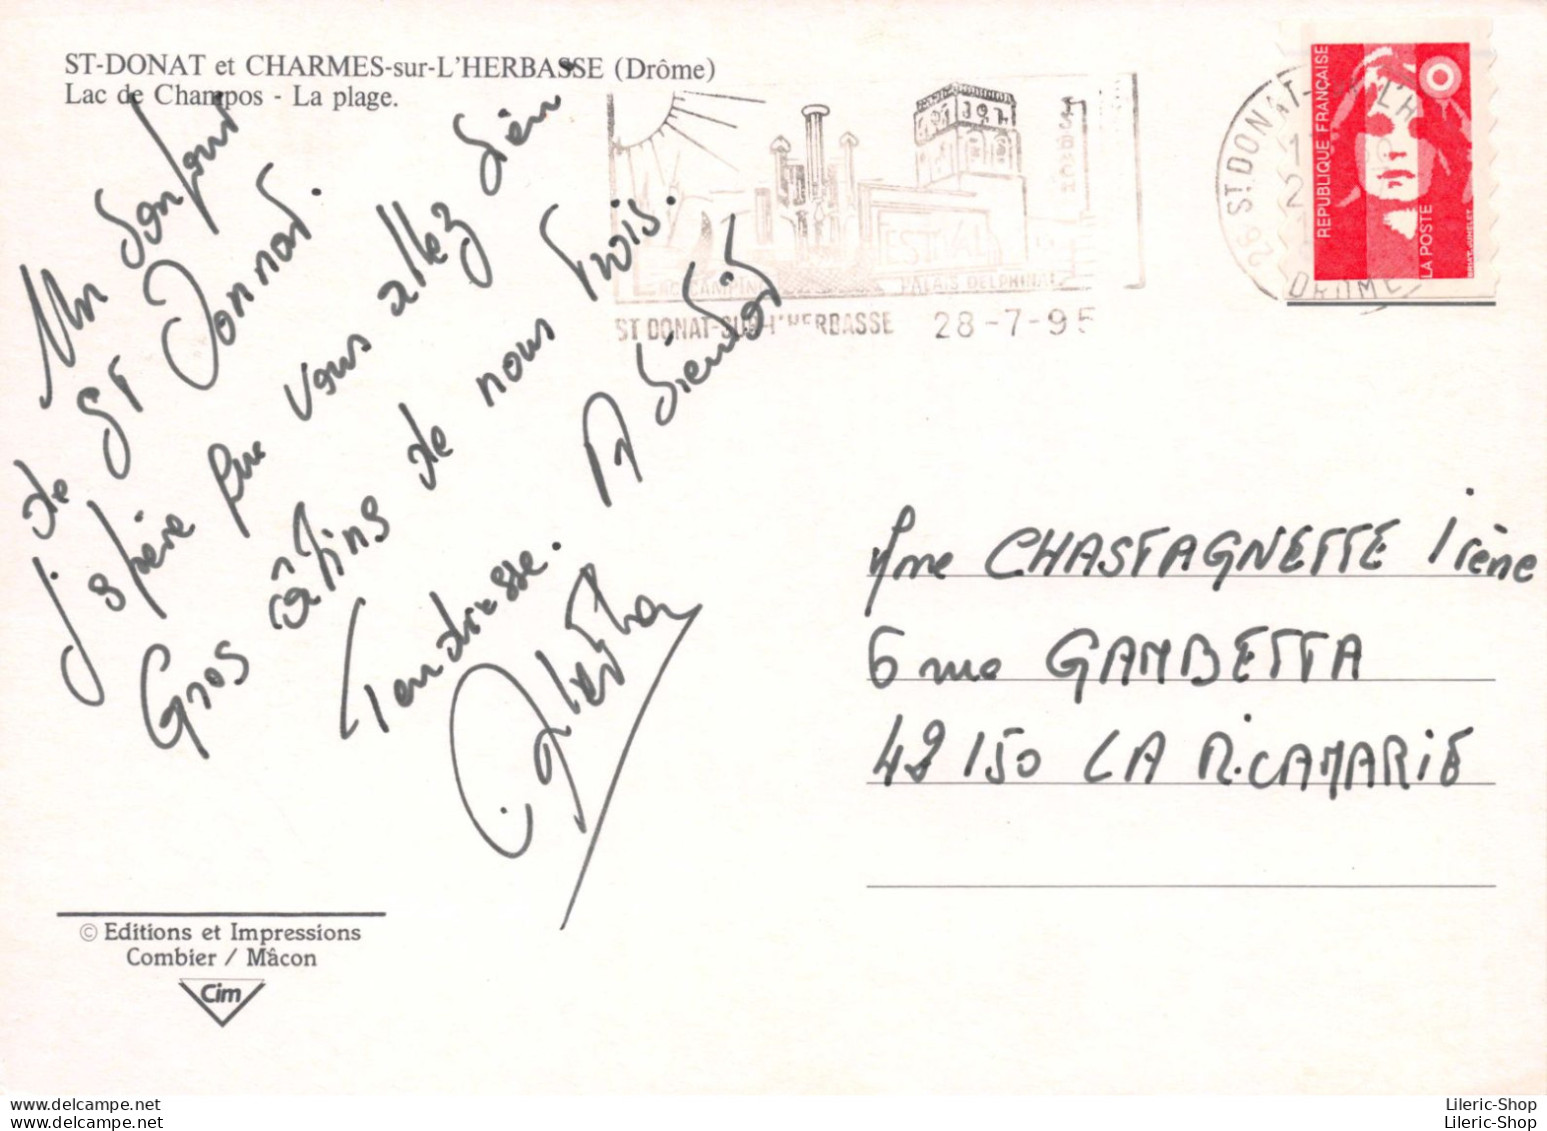 ST-DONAT et CHARMES-sur-L'HERBASSE (Drôme)
Lac de Champos - La plage.
Un bonjour
de St Donnat.
J'espère que vous allez bien
Gros câlins de nous trois.
Tendresse. A bientôt
CAMPING
FESTIVAL
PALAIS DELPHINAL
MUSIQUE
ST DONAT-SUR-L'HERBASSE 28-7-95
26 ST DONAT-SUR-L'H
DROME
REPUBLIQUE FRANÇAISE
LA POSTE
Mme CHASTAGNETTE Irène
6 rue GAMBETTA
42150 LA RICAMARIE
© Editions et Impressions
Combier / Mâcon
Cim
Lileric-Shop
Lileric-Shop
Lileric-Shop
Lileric-Shop